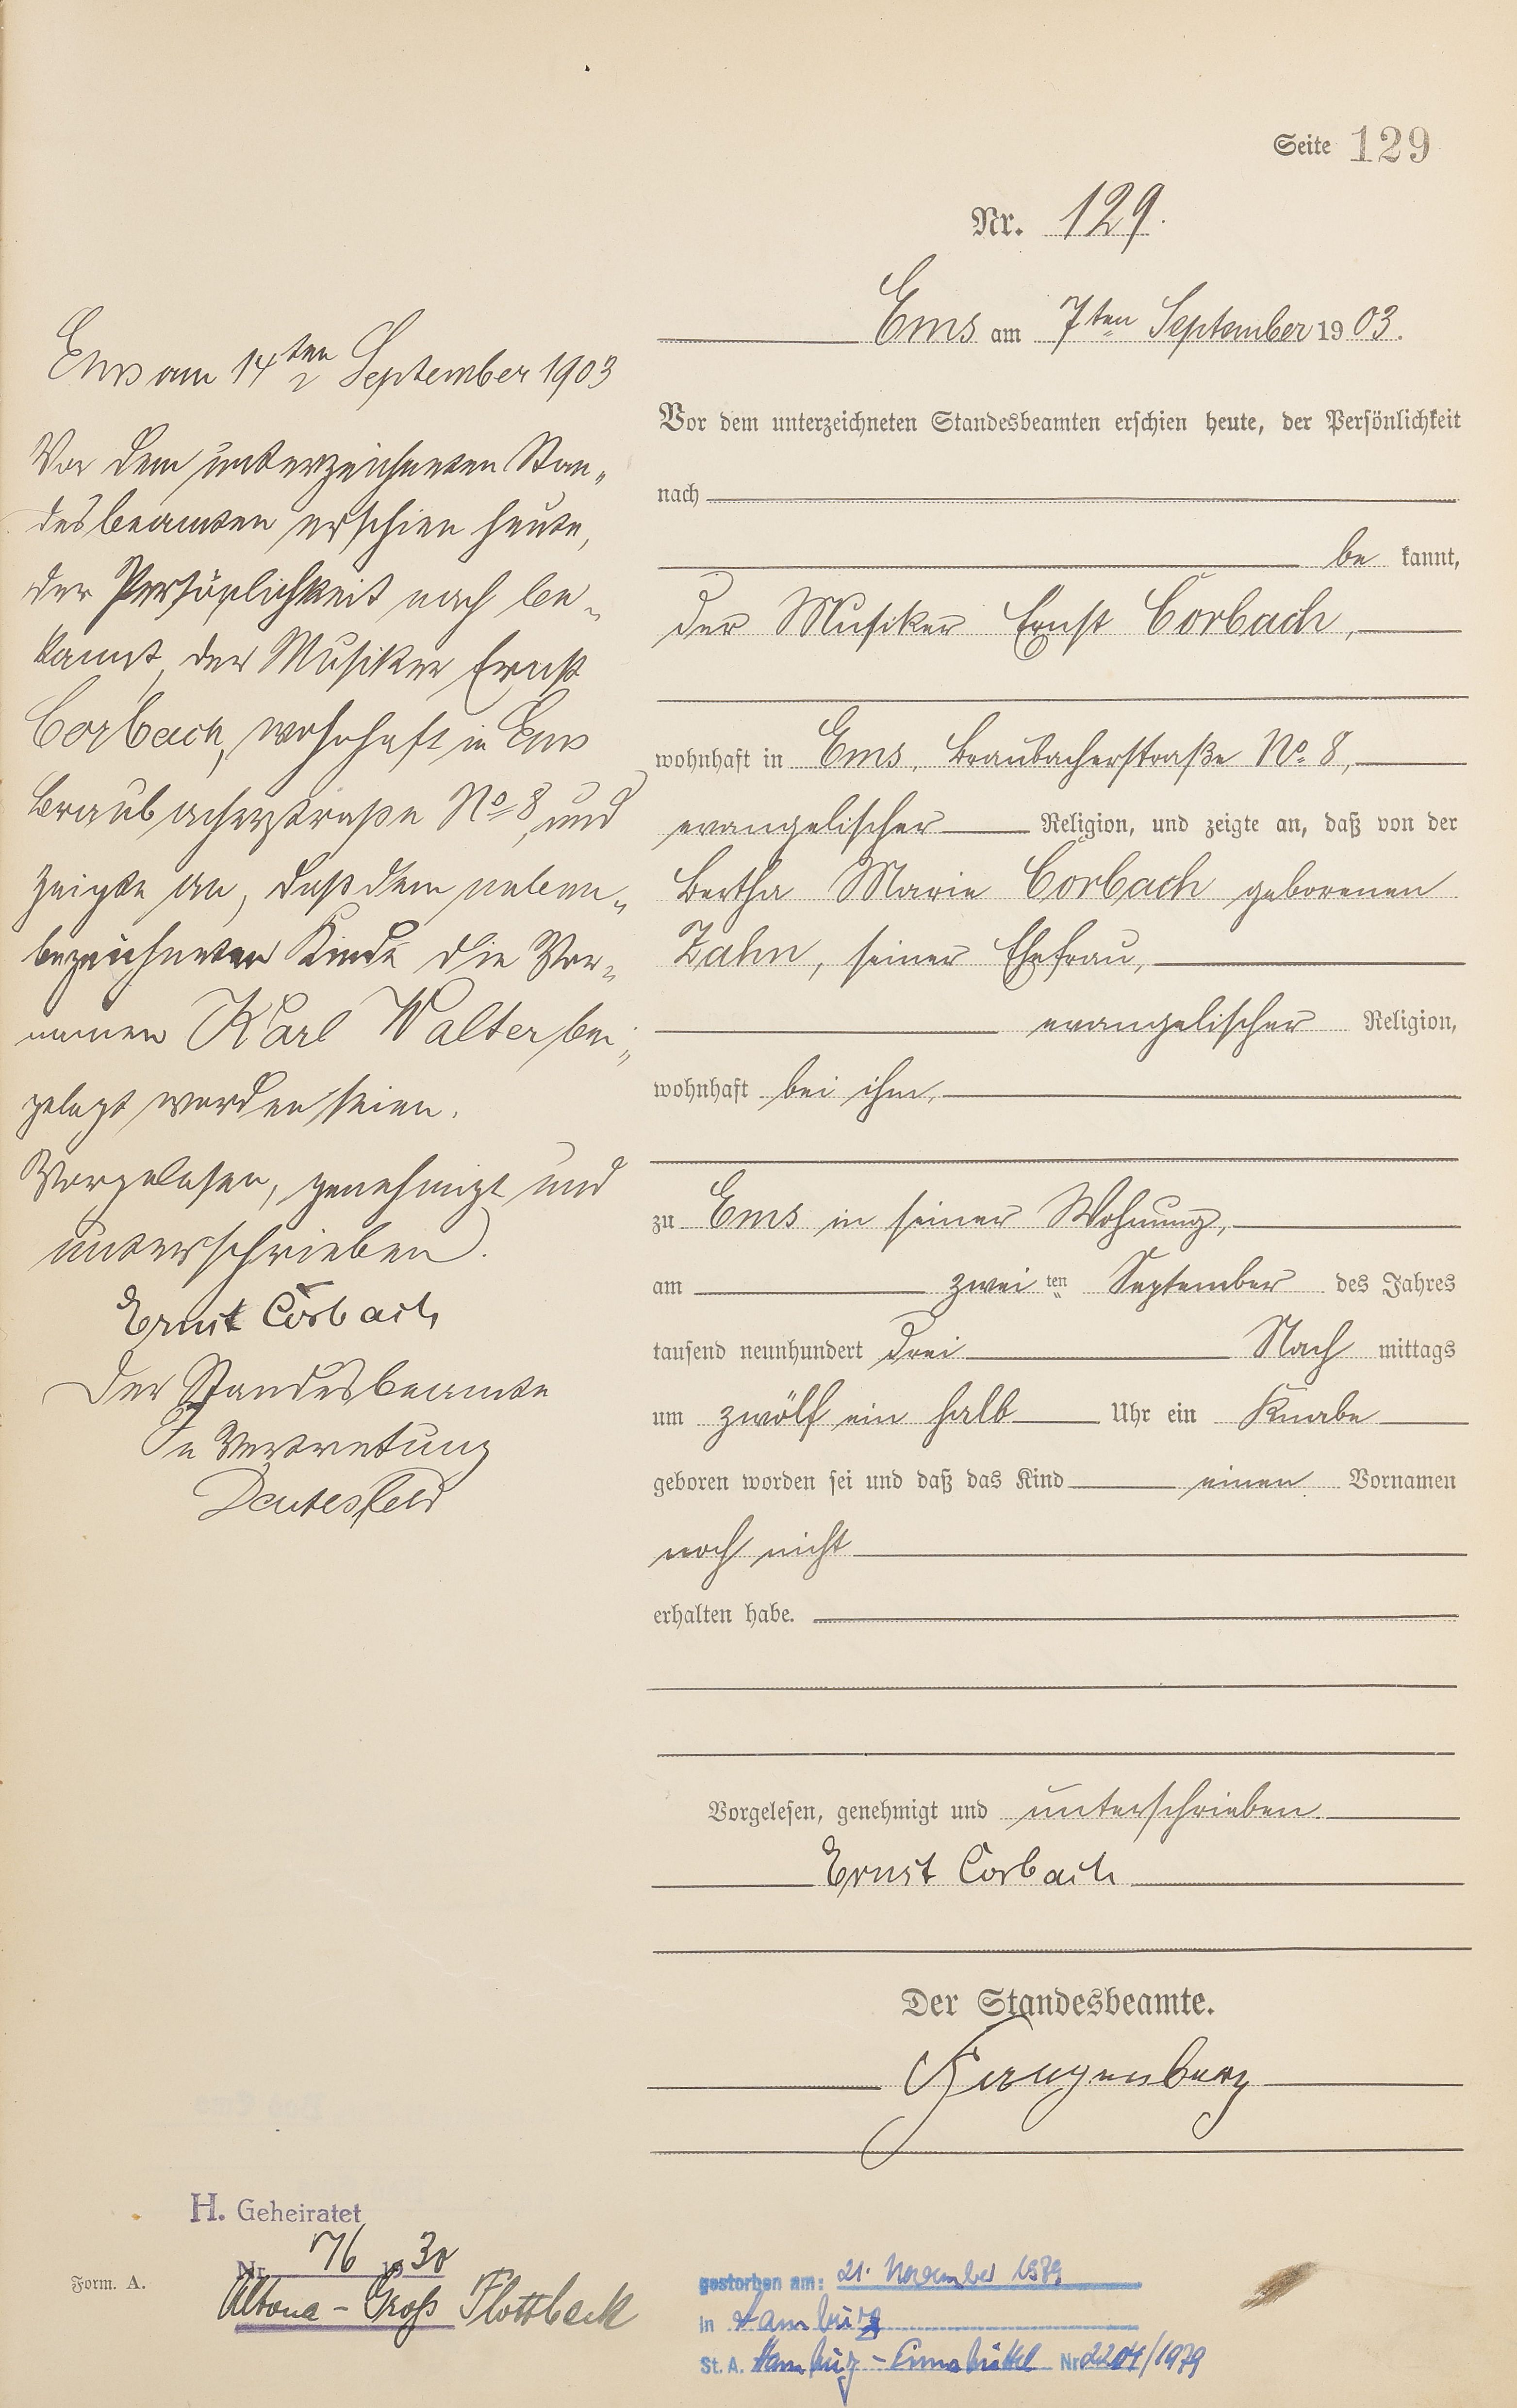 Seite 129
Nr. 129.
Ems am 7ten September 1903.
Vor dem unterzeichneten Standesbeamten erschien heute, der Persönlichkeit
nach
be kannt,
der Musiker Ernst Corbach,
wohnhaft in Ems, Braubacherstraße No. 8,
evangelischer Religion, und zeigte an, daß von der
Bertha Marie Corbach geborenen
Zahn, seiner Ehefrau,
evangelischer Religion,
wohnhaft bei ihm,
zu Ems in seiner Wohnung,
am zwei ten September des Jahres
tausend neunhundert drei Nach mittags
um zwölf ein halb Uhr ein Knabe
geboren worden sei und daß das Kind einen Vornamen
noch nicht
erhalten habe.
Vorgelesen, genehmigt und unterschrieben.
Ernst Corbach
Der Standesbeamte.
Ems am 14ten September 1903
Vor dem unterzeichneten Stan-
desbeamten erschien heute,
der Persönlichkeit nach be-
kannt, der Musiker Ernst
Corbach, wohnhaft in Ems
Braubacherstraße No 8, und
zeigte an, daß dem neben-
bezeichneten Kinde die Vor-
namen Karl Walter bei-
gelegt worden seien.
Vorgelesen, genehmigt und
unterschrieben.
Ernst Corbach
Der Standesbeamte
In Vertretung
H. Geheiratet
Nr. 76 1930
Altona-Groß Flottbeck
Form. A.
gestorben am: 21. November 1979
in Hamburg
St. A. Hamburg- Nr 2204/1979